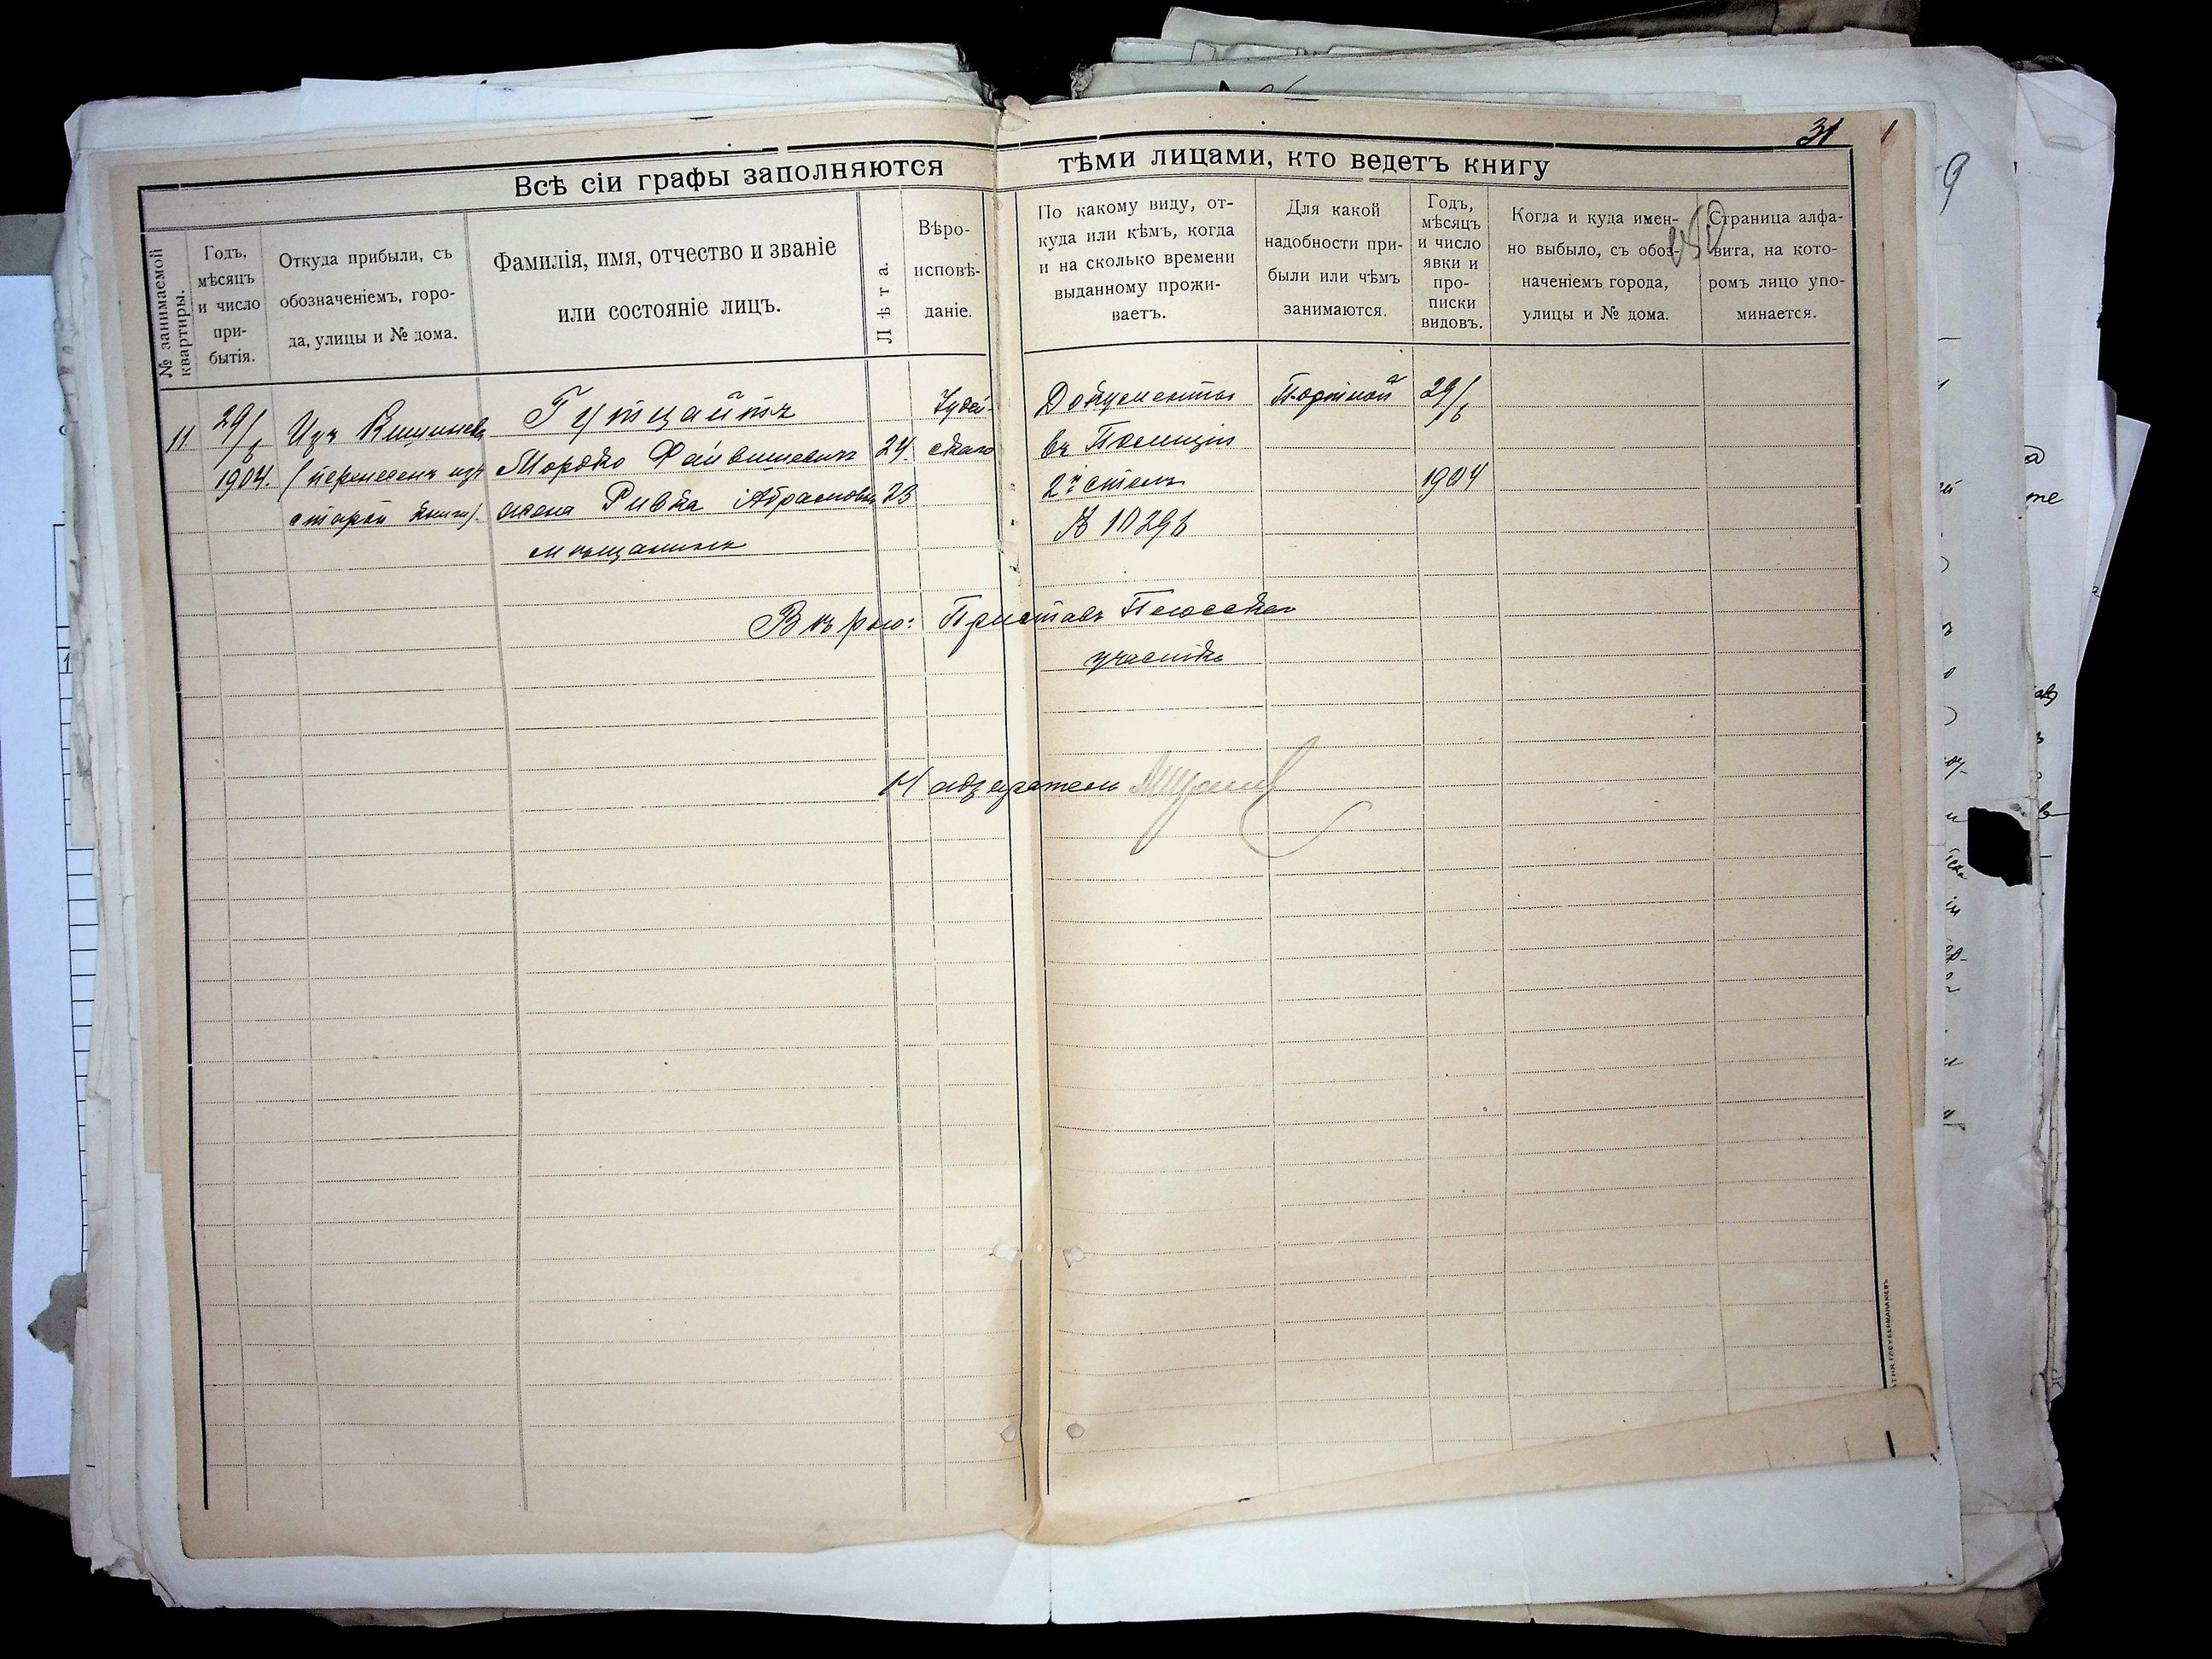 31
Всѣ сіи графы заполняются тѣми лицами, кто ведетъ книгу
№ занимаемой
квартиры.
Годъ,
мѣсяцъ
и число
при-
бытія.
Откуда прибыли, съ
обозначеніемъ, горо-
да, улицы и № дома.
Фамилія, имя, отчество и званіе
или состояніе лицъ.
Лѣта.
Вѣро-
исповѣ-
даніе.
По какому виду, от-
куда или кѣмъ, когда
и на сколько времени
выданному прожи-
ваетъ.
Для какой
надобности при-
были или чѣмъ
занимаются.
Годъ,
мѣсяцъ
и число
явки и
про-
писки
видовъ.
Когда и куда имен-
но выбыло, съ обоз-
наченіемъ города,
улицы и № дома.
Страница алфа-
вита, на кото-
ромъ лицо упо-
минается.
11
29/
1904.
Изъ Кишинева
(перенесенъ изъ
старой книги).
Гутцайтъ
Мордко Файвишевичъ
жена Ривка Абрамовна
мѣщанинъ
24.
23
Іудей-
скаго
Документы
въ Полиціи
2й столъ
№ 10296
Портной
29/
1904
Вѣрно: Приставъ
участка
Надзиратель
9